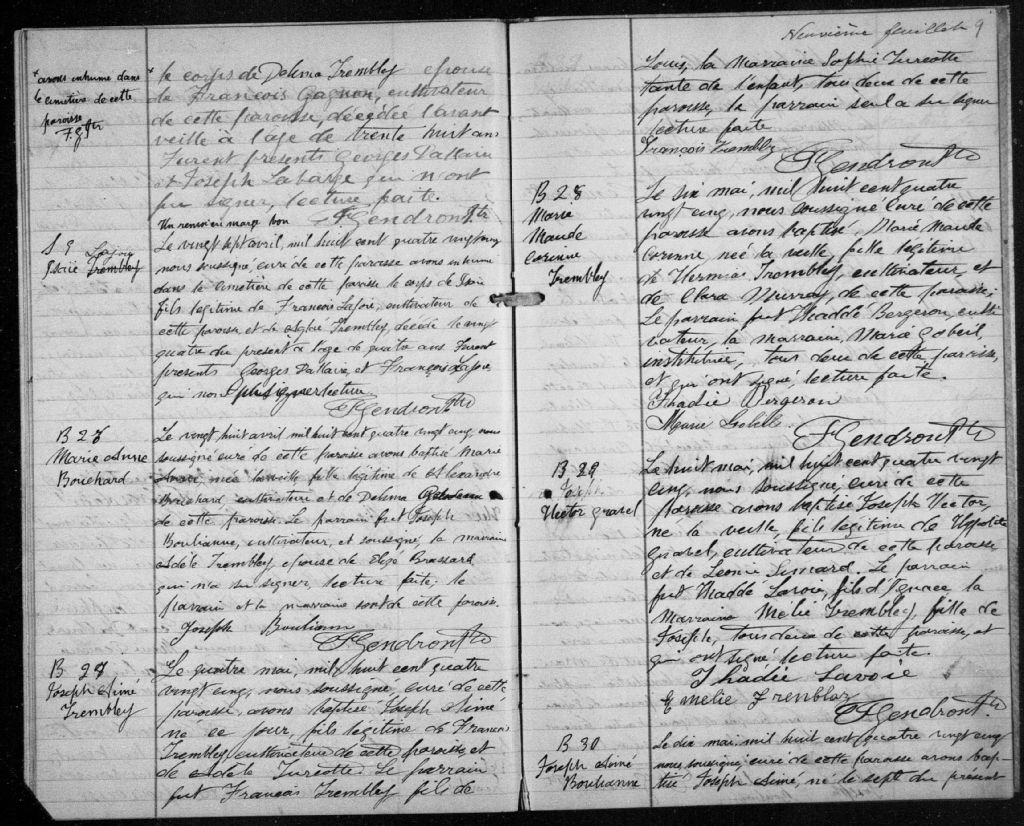 + avons inhumé dans
le cimetière de cette
paroisse
F.G. Ptr
+ le corps de Delima Trembley épouse
de François Gagnon, cultivateur
de cette paroisse, décédée l'avant
veille à l'age de trente huit ans
Furent présents Georges Dallaire
et Joseph Labarge qui n'ont
pu signer, lecture faite.
Un renvoi en marge bon
F. Gendron Ptr
S 9 Lajoie
Trembley
Le vingt sept avril, mil huit cent quatre vingt cinq
nous soussigné curé de cette paroisse avons inhumé
dans le cimetière de cette paroisse le corps de
fils légitime de François Lajoie, cultivateur de
cette paroisse et de Trembley, décédé le vingt
quatre du présent à l'age de quatre ans Furent
présents Georges Dallaire, et François Lajoie,
qui n'ont pu signer lecture
F. Gendron Ptr
B 27
Marie Anne
Bouchard
Le vingt huit avril mil huit cent quatre vingt cinq, nous
soussigné curé de cette paroisse avons baptisé Marie
née la veille fille légitime de
Bouchard cultivateur et de Delima
de cette paroisse. Le parrain fut Joseph
Boulianne, cultivateur, et soussigné, la marraine
Adèle Trembley épouse de Elzé Brassard
qui n'a su signer, lecture faite, le
parrain et la marraine sont de cette paroisse.
Joseph Boulianne
F. Gendron Ptr
B 27
Joseph Aimé
Trembley
Le quatre mai, mil huit cent quatre
vingt cinq, nous soussigné, curé de cette
paroisse, avons baptisé Joseph Aimé
né ce jour, fils légitime de François
Trembley, cultivateur de cette paroisse et
de Adèle Turcotte. Le parrain
fut François Trembley fils de
Neuvième feuillet 9
Louis, la Marraine Sophie Turcotte
tante de l'enfant, tous deux de cette
paroisse, le parrain seul a su signer
lecture faite
François Trembly
F. Gendron Ptr
B 28
Marie
Maude
Corinne
Trembley
Le six mai, mil huit cent quatre
vingt cinq, nous soussigné curé de cette
paroisse avons baptisé, Marie Maude
Corinne, née la veille, fille légitime
de Trembley, cultivateur, et
de Clara Murray, de cette paroisse;
Le parrain fut Thaddé Bergeron, culti-
vateur, la marraine, Marie Gobeil,
institutrice, tous deux de cette paroisse,
et qui ont signé lecture faite.
Thadée Bergeron
Marie
F. Gendron Ptr
B 29
Joseph
Hector Gravel
Le huit mai, mil huit cent quatre vingt
cinq, nous soussigné, curé de cette
paroisse avons baptisé Joseph Hector,
né la veille, fils légitime de Hypolite
Gravel, cultivateur de cette paroisse
et de Léonie Simard. Le parrain
fut Thaddé Lavoie, fils d'Ignace la
Marraine Mélie Trembley, fille de
Joseph, tous deux de cette paroisse, et
qui ont signé lecture faite.
Thadée Lavoie
Emelie Tremblay
F. Gendron Ptr.
B 30
Joseph Aimé
Boulianne
Le dix mai mil huit cent quatre vingt cinq
nous soussigné, curé de cette paroisse avons bap-
tisé Joseph Aimé, né le sept du présent